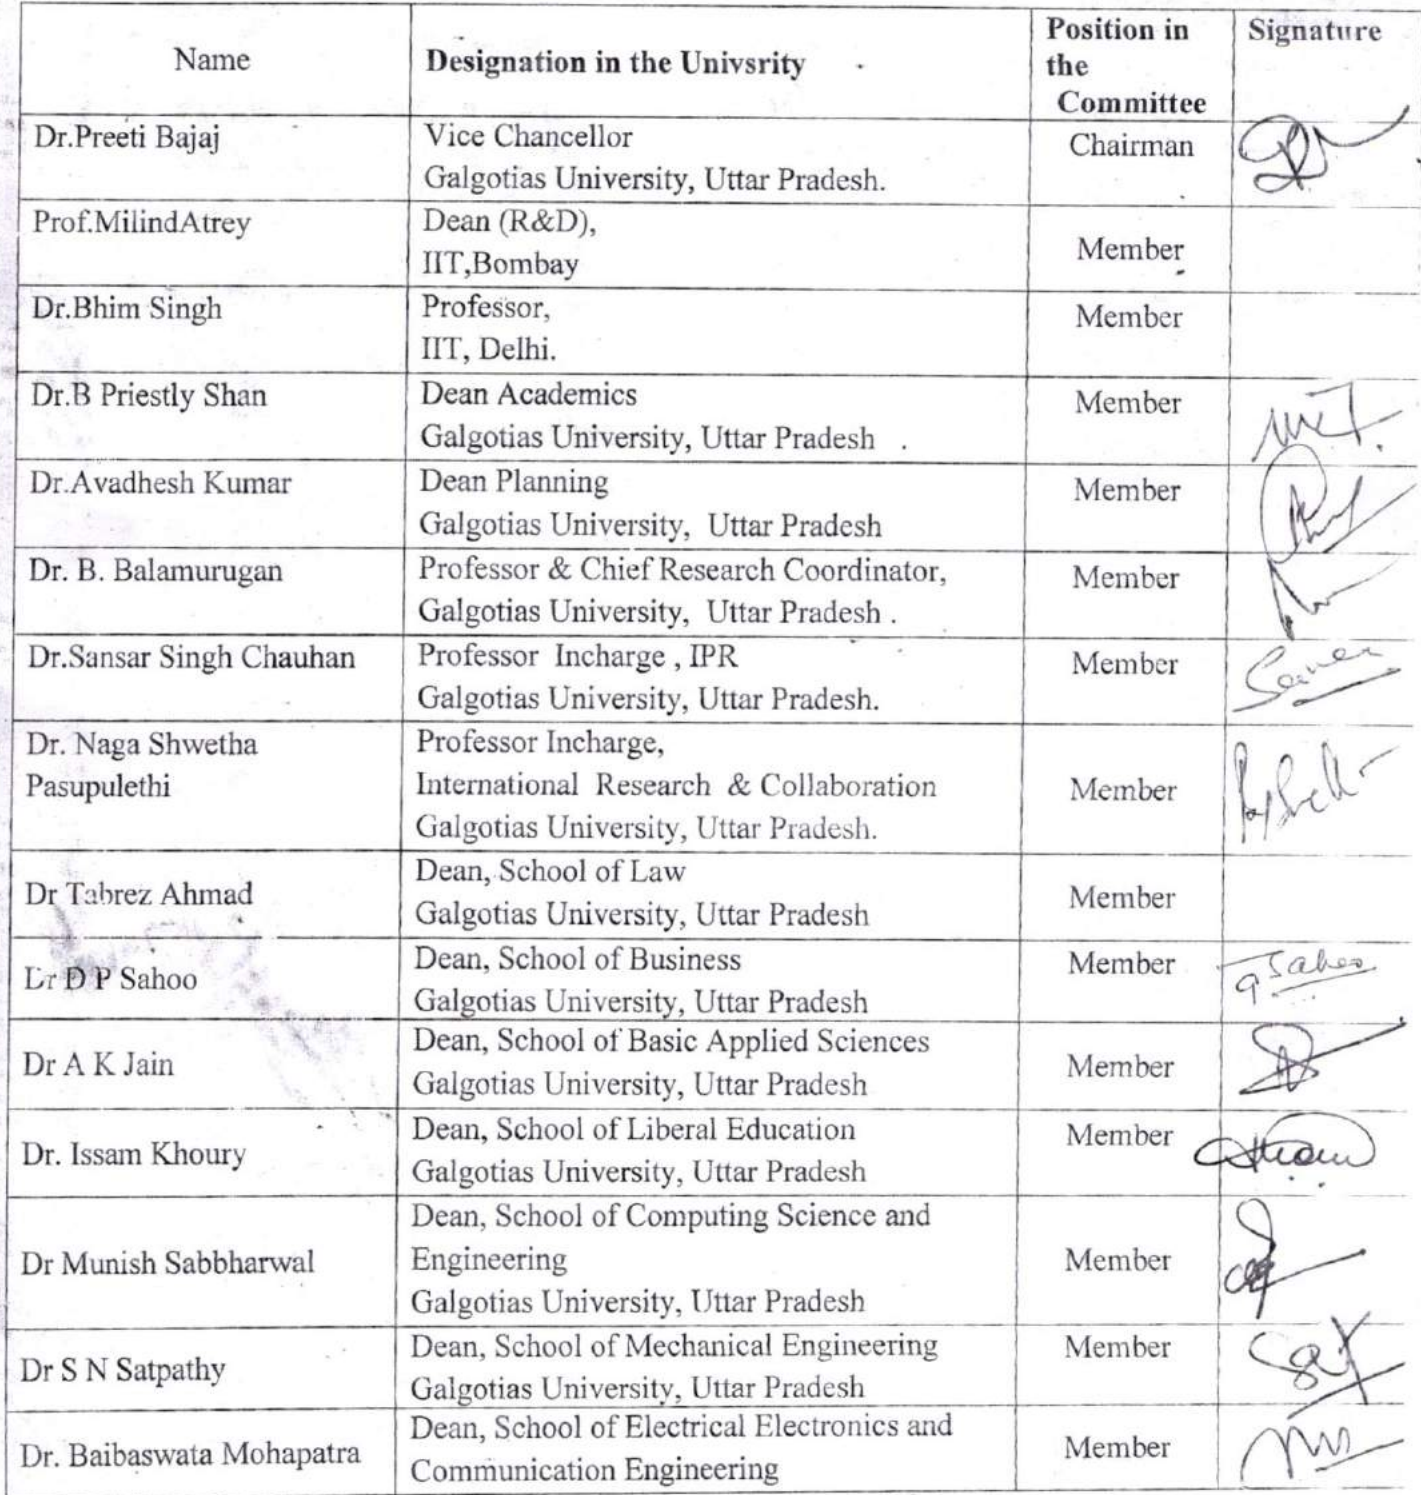 Name
Designation in the Univsrity
Position in
the
Committee
Signature
Dr.Preeti Bajaj
Vice Chancellor
Galgotias University, Uttar Pradesh.
Chairman
Prof.MilindAtrey
Dean (R&D),
IIT,Bombay
Member
Dr.Bhim Singh
Professor,
IIT, Delhi.
Member
Dr.B Priestly Shan
Dean Academics
Galgotias University, Uttar Pradesh .
Member
Dr.Avadhesh Kumar
Dean Planning
Galgotias University, Uttar Pradesh
Member
Dr. B. Balamurugan
Professor & Chief Research Coordinator,
Galgotias University, Uttar Pradesh .
Member
Dr.Sansar Singh Chauhan
Professor Incharge , IPR
Galgotias University, Uttar Pradesh.
Member
Dr. Naga Shwetha
Pasupulethi
Professor Incharge,
International Research & Collaboration
Galgotias University, Uttar Pradesh.
Member
Dr Tabrez Ahmad
Dean, School of Law
Galgotias University, Uttar Pradesh
Member
Dr D P Sahoo
Dean, School of Business
Galgotias University, Uttar Pradesh
Member
Dr A K Jain
Dean, School of Basic Applied Sciences
Galgotias University, Uttar Pradesh
Member
Dr. Issam Khoury
Dean, School of Liberal Education
Galgotias University, Uttar Pradesh
Member
Dr Munish Sabbharwal
Dean, School of Computing Science and
Engineering
Galgotias University, Uttar Pradesh
Member
Dr S N Satpathy
Dean, School of Mechanical Engineering
Galgotias University, Uttar Pradesh
Member
Dr. Baibaswata Mohapatra
Dean, School of Electrical Electronics and
Communication Engineering
Member